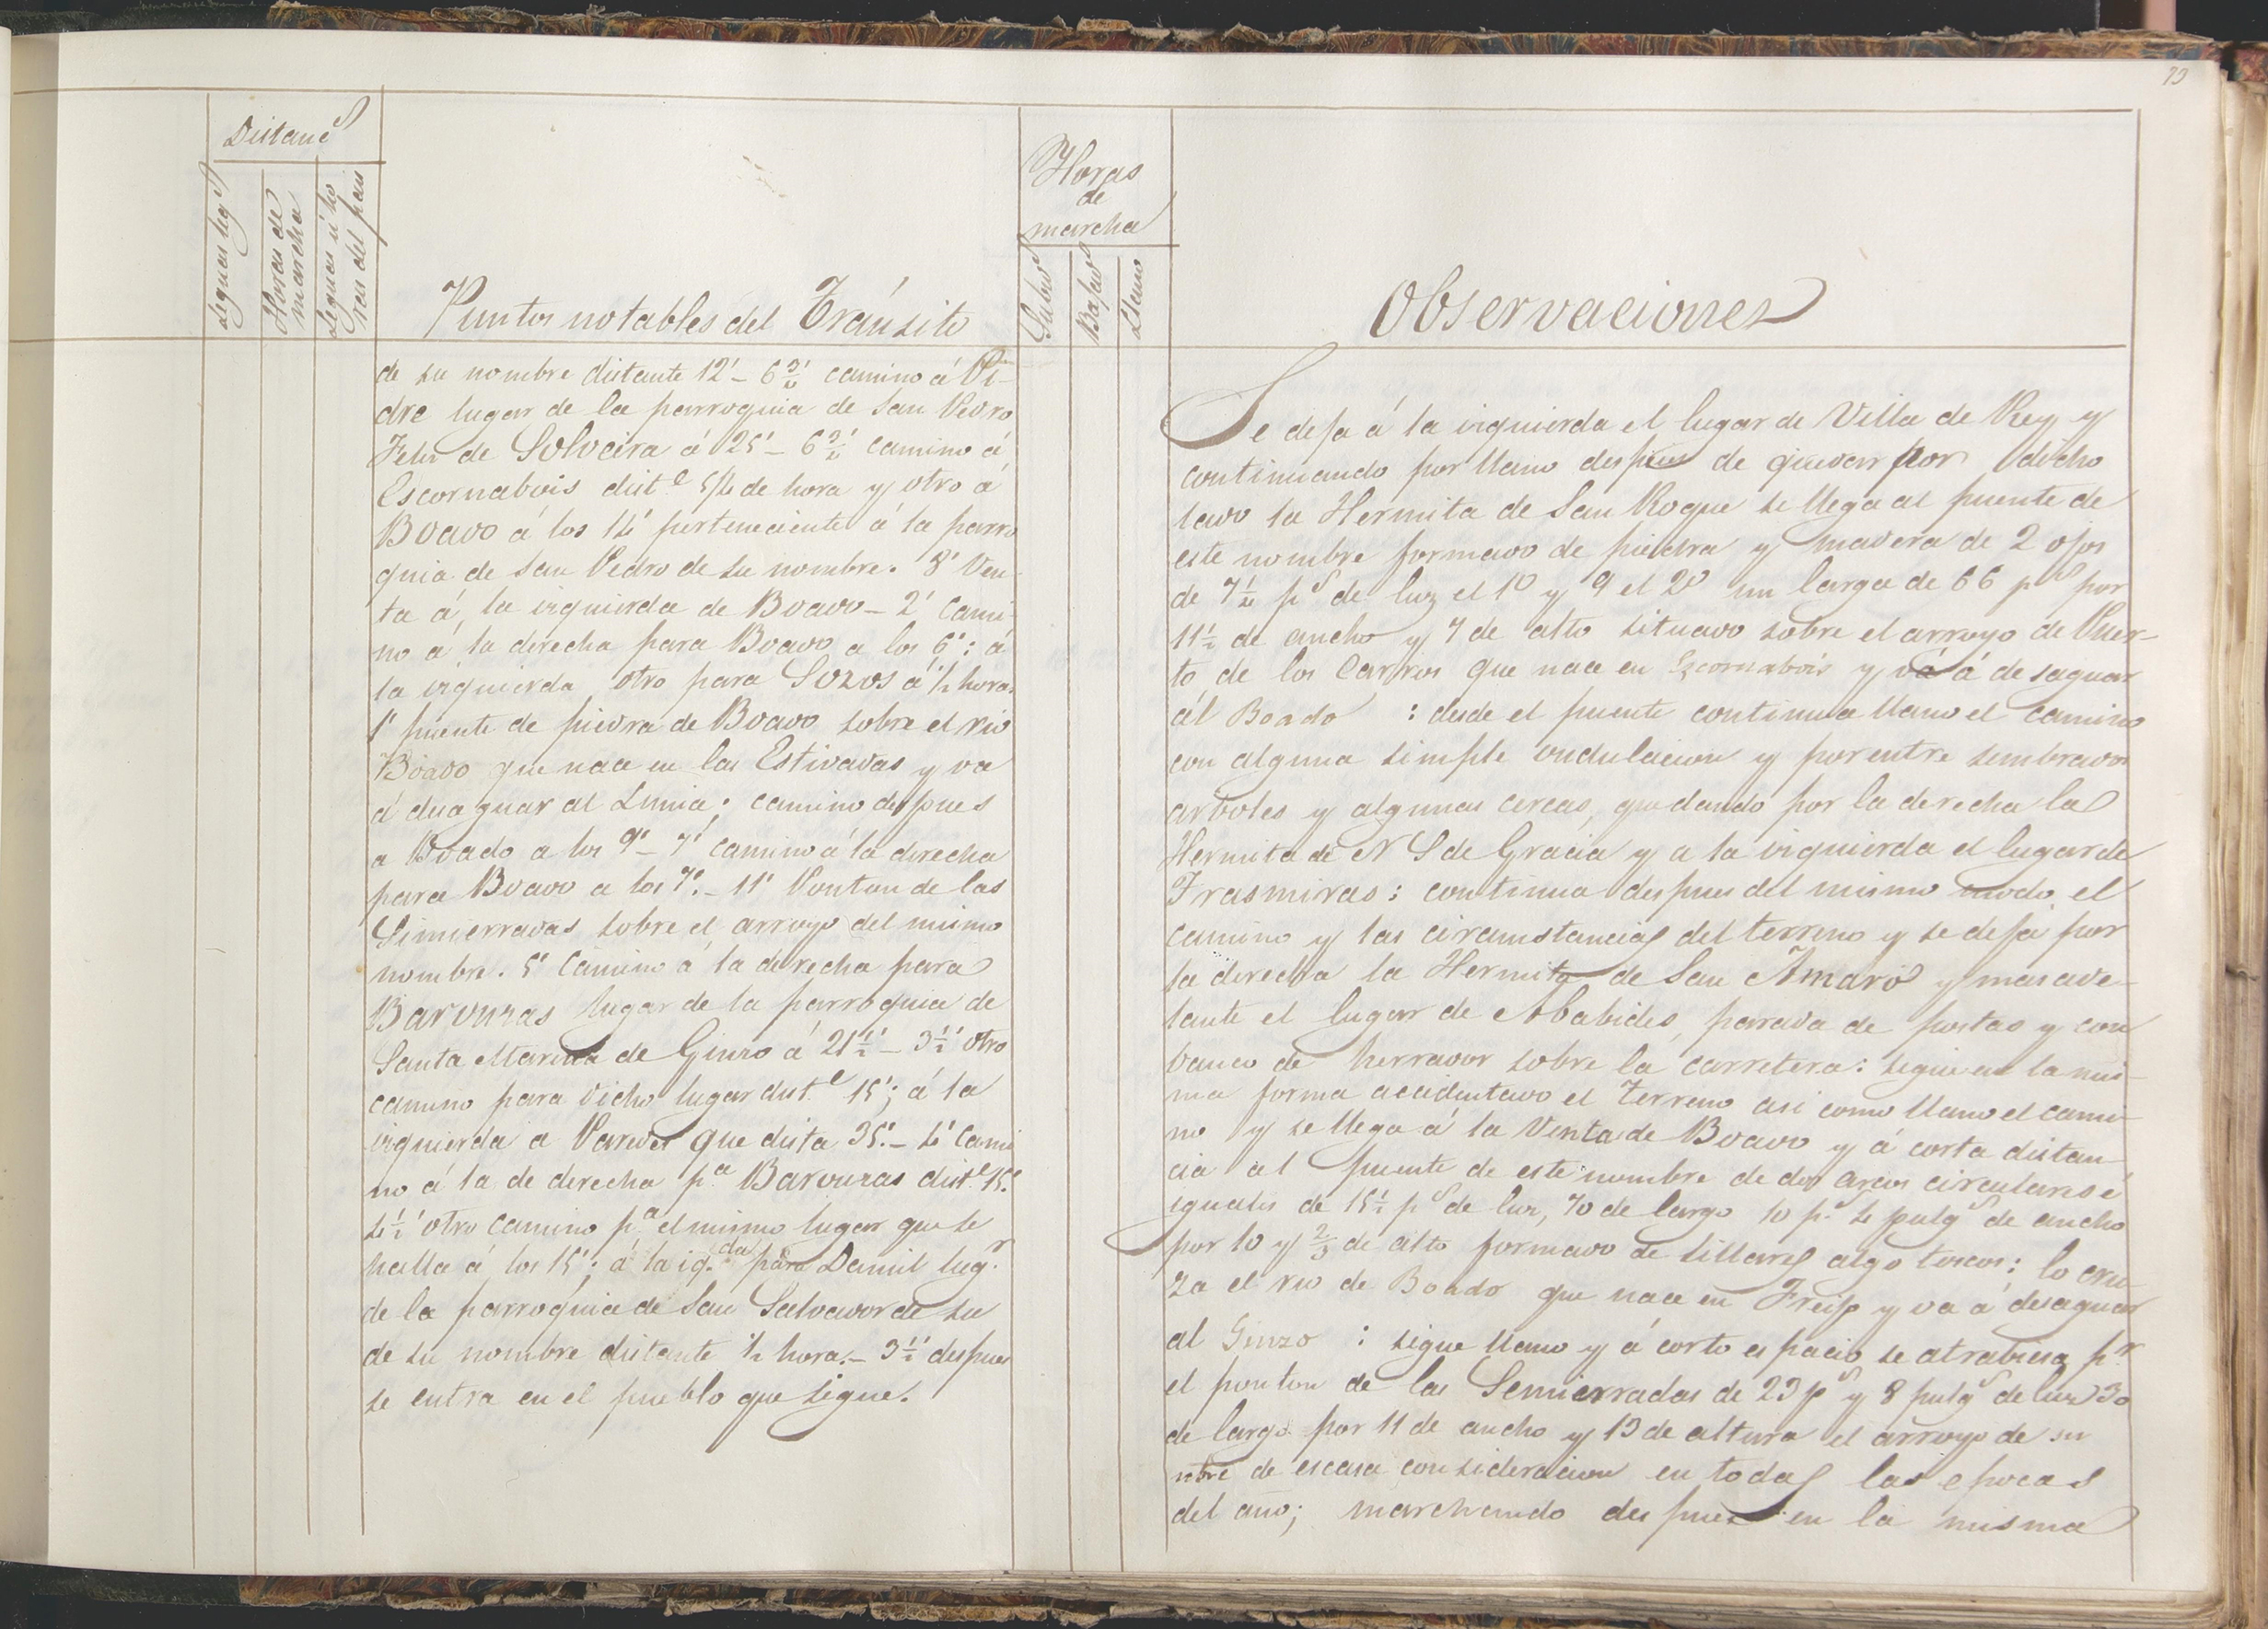 73
Distanc.s
Leguas leg.s
Horas de
marcha
Leguas ú ho
ras del pais
Puntos notables del Tránsito
Horas
de
marcha
Subid
Bajad
Llano
Observaciones
de su nombre distante 12' - 6 3/4' camino á Pi-
dre lugar de la parroquia de San Pedro
Felix de Solveira á 25' - 6 3/4' camino á
Escornabois dist.e 5/4 de hora y otro á
Boado á los 14' perteneciente á la parro
quia de San Pedro de su nombre. 8' Ven-
ta á la izquierda de Boado - 2' Cami-
no á la derecha para Boado a los 6': á
la izquierda otro para Sozos á 1/2 hora.
1' puente de piedra de Boado sobre el rio
Boado que nace en las Estivadas y va
á desaguar al Limia; camino despues
a Boado a los 9' - 7' camino á la derecha
para Boado a los 7'. - 11' Ponton de las
Simierradas sobre el arroyo del mismo
nombre. 5' Camino á la derecha para
Barouzas lugar de la parroquia de
Santa Marina de Ginzo á 21 1/2' - 3 1/2' otro
camino para dicho lugar dist.e 15'; á la
izquierda a Paredes que dista 35'. - 4' Cami
no á la de derecha p.a Barouzas dist.e 15'.
4 1/2' otro camino p.a el mismo lugar que se
halla á los 15'; á la izq.da para Damil lug.r
de la parroquia de San Salvador de su
de su nombre distante 1/2 hora. - 3 1/2' despues
se entra en el pueblo que sigue.
Se deja á la izquierda el lugar de Villa de Rey y
continuando por llano despues de quedar por dicho
lado la Hermita de San Roque se llega al puente de
este nombre formado de piedra y madera de 2 ojos
de 7 1/2 p.s de luz el 1º y 9 el 2º un larga de 66 p.s por
11 1/2 de ancho y 7 de alto situado sobre el arroyo de Puer-
to de los Carros que nace en Escornabois y vá á desaguar
ál Boado : desde el puente continua llano el camino
con alguna simple ondulacion y por entre sembrados
arboles y algunas cercas, quedando por la derecha la
Hermita de N S de Gracia y a la izquierda el lugar de
Trasmiras: continua despues del mismo modo el
camino y las circunstancias del terreno y se deja por
la derecha la Hermita de San Amaro y mas ade-
lante el lugar de Ababides, parada de postas y con
banco de herrador sobre la carretera: sigue en la mis-
ma forma accidentado el terreno asi como llano el cami-
no y se llega á la Venta de Boado y á corta distan-
cia al puente de este nombre de dos arcos circulares é
iguales de 15 1/2 p.s de luz, 70 de largo 10 p.s 4 pulg.s de ancho
por 10 y 2/3 de alto formado de sillares algo toscos: lo cru-
za el rio de Boado que nace en Freijo y va á desaguar
al Ginzo : sigue llano y á corto espacio se atrabiesa p.r
el ponton de las Semierradas de 23 p.s y 8 pulg.s de luz 30
de largo por 11 de ancho y 13 de altura el arroyo de su
nbre de escasa consideracion en todas las epocas
del año; marchando despues en la misma